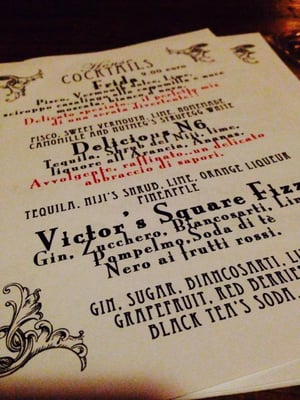 House
COCKTAILS
Frida 9.00 euro
Pisco, Vermouth dolce, Lime,
sciroppo
Delicato, speziato il perfetto mix
di una serata divertente!
PISCO, SWEET VERMOUTH, LIME, HOMEMADE
CAMOMILLE AND NUTMEG'S SYRUP, EGG WHITE
Delicious N6
Tequila, Shrub del Niji, Lime,
liquore all'Arancia, Ananas.
Avvolgente, raffinato...un delicato
abbraccio di sapori.
TEQUILA, NIJI'S SHRUB, LIME, ORANGE LIQUEUR
PINEAPPLE
Victor's Square Fizz
Gin, Zucchero, Biancosarti, Lim
Pompelmo, Soda di tè
Nero ai frutti rossi.
GIN, SUGAR, BIANCOSARTI, LI
GRAPEFRUIT, RED BERRIE
BLACK TEA'S SODA.